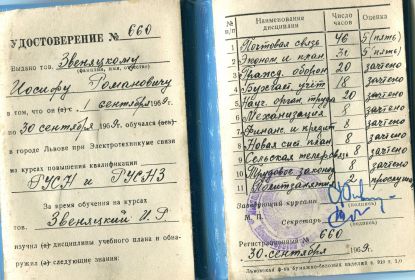 УДОСТОВЕРЕНИЕ № 660
Выдано тов. Звеняцкому
(фамилия, имя, отчество)
Иосифу Романовичу
в том, что он (а) с 1 сентября 1969 г.
по 30 сентября 1969 г. обучался (ась)
в городе Львове при Электротехникуме связи
на курсах повышения квалификации
РУСН и РУСНЗ
За время обучения на курсах
тов. Звеняцкий И.Р.
изучил (а) дисциплины учебного плана и обна-
ружил (а) следующие знания:
№ п/п Наименование дисциплин Число часов Оценка
1 Почтовая связь 46 5 (пять)
2 Эконом и план 32 5 (пять)
3 Гражд. оборон 20 зачтено
4 Бухгалт. учет 18 зачтено
5 Науч. орган. труда 20 зачтено
6 Механизация 8 зачтено
7 Финанс и кредит 8 зачтено
8 Новая сист план 8 зачтено
9 Сельская телефония 8 зачтено
10 Трудовое законод 8 зачтено
11 Политзанятия 2 прослуш
Заведующий курсами
(подпись)
М. П.
Секретарь
(подпись)
Регистрационный № 660
30 сентября 1969 г.
Львовская ф-ка бумажно-беловых изделий з. 910 т. 10